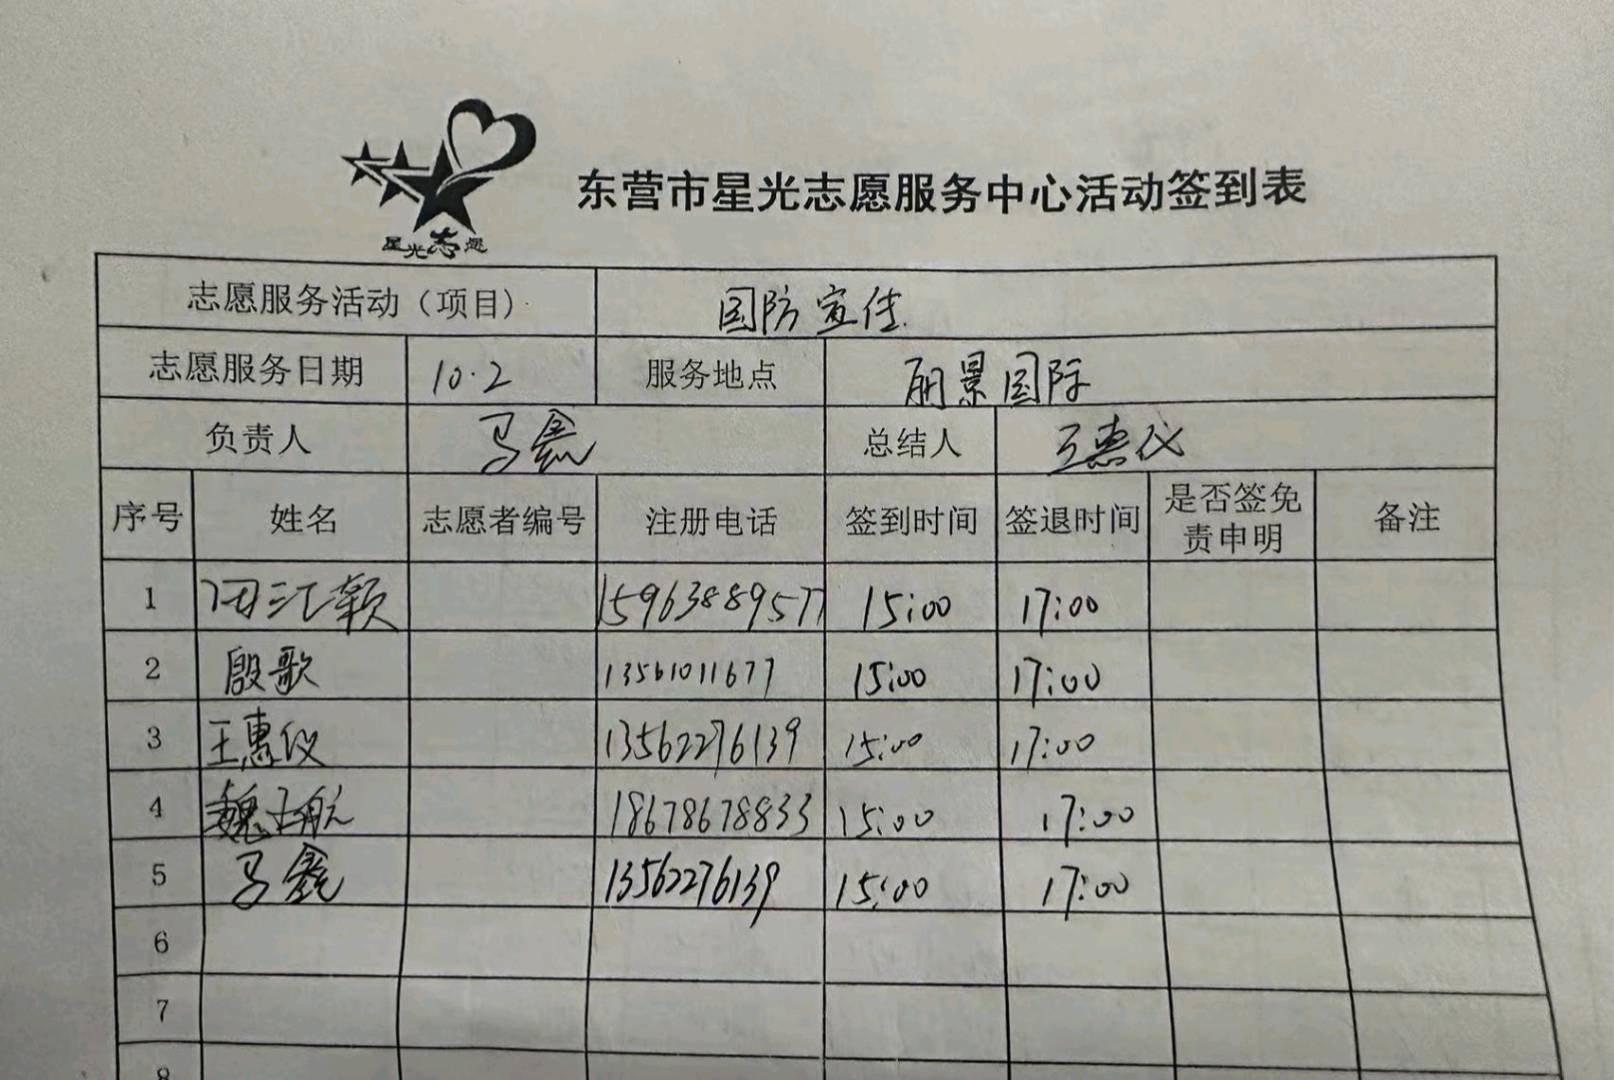 星光志愿
东营市星光志愿服务中心活动签到表
志愿服务活动（项目） 国防宣传
志愿服务日期 10.2 服务地点 丽景国际
负责人 马鑫 总结人 王惠仪
序号 姓名 志愿者编号 注册电话 签到时间 签退时间 是否签免责申明 备注
1 15963889577 15:00 17:00
2 殷歌 13561011677 15:00 17:00
3 王惠仪 13562276139 15:00 17:00
4 魏 航 18678678833 15:00 17:00
5 马鑫 13562276139 15:00 17:00
6
7
8